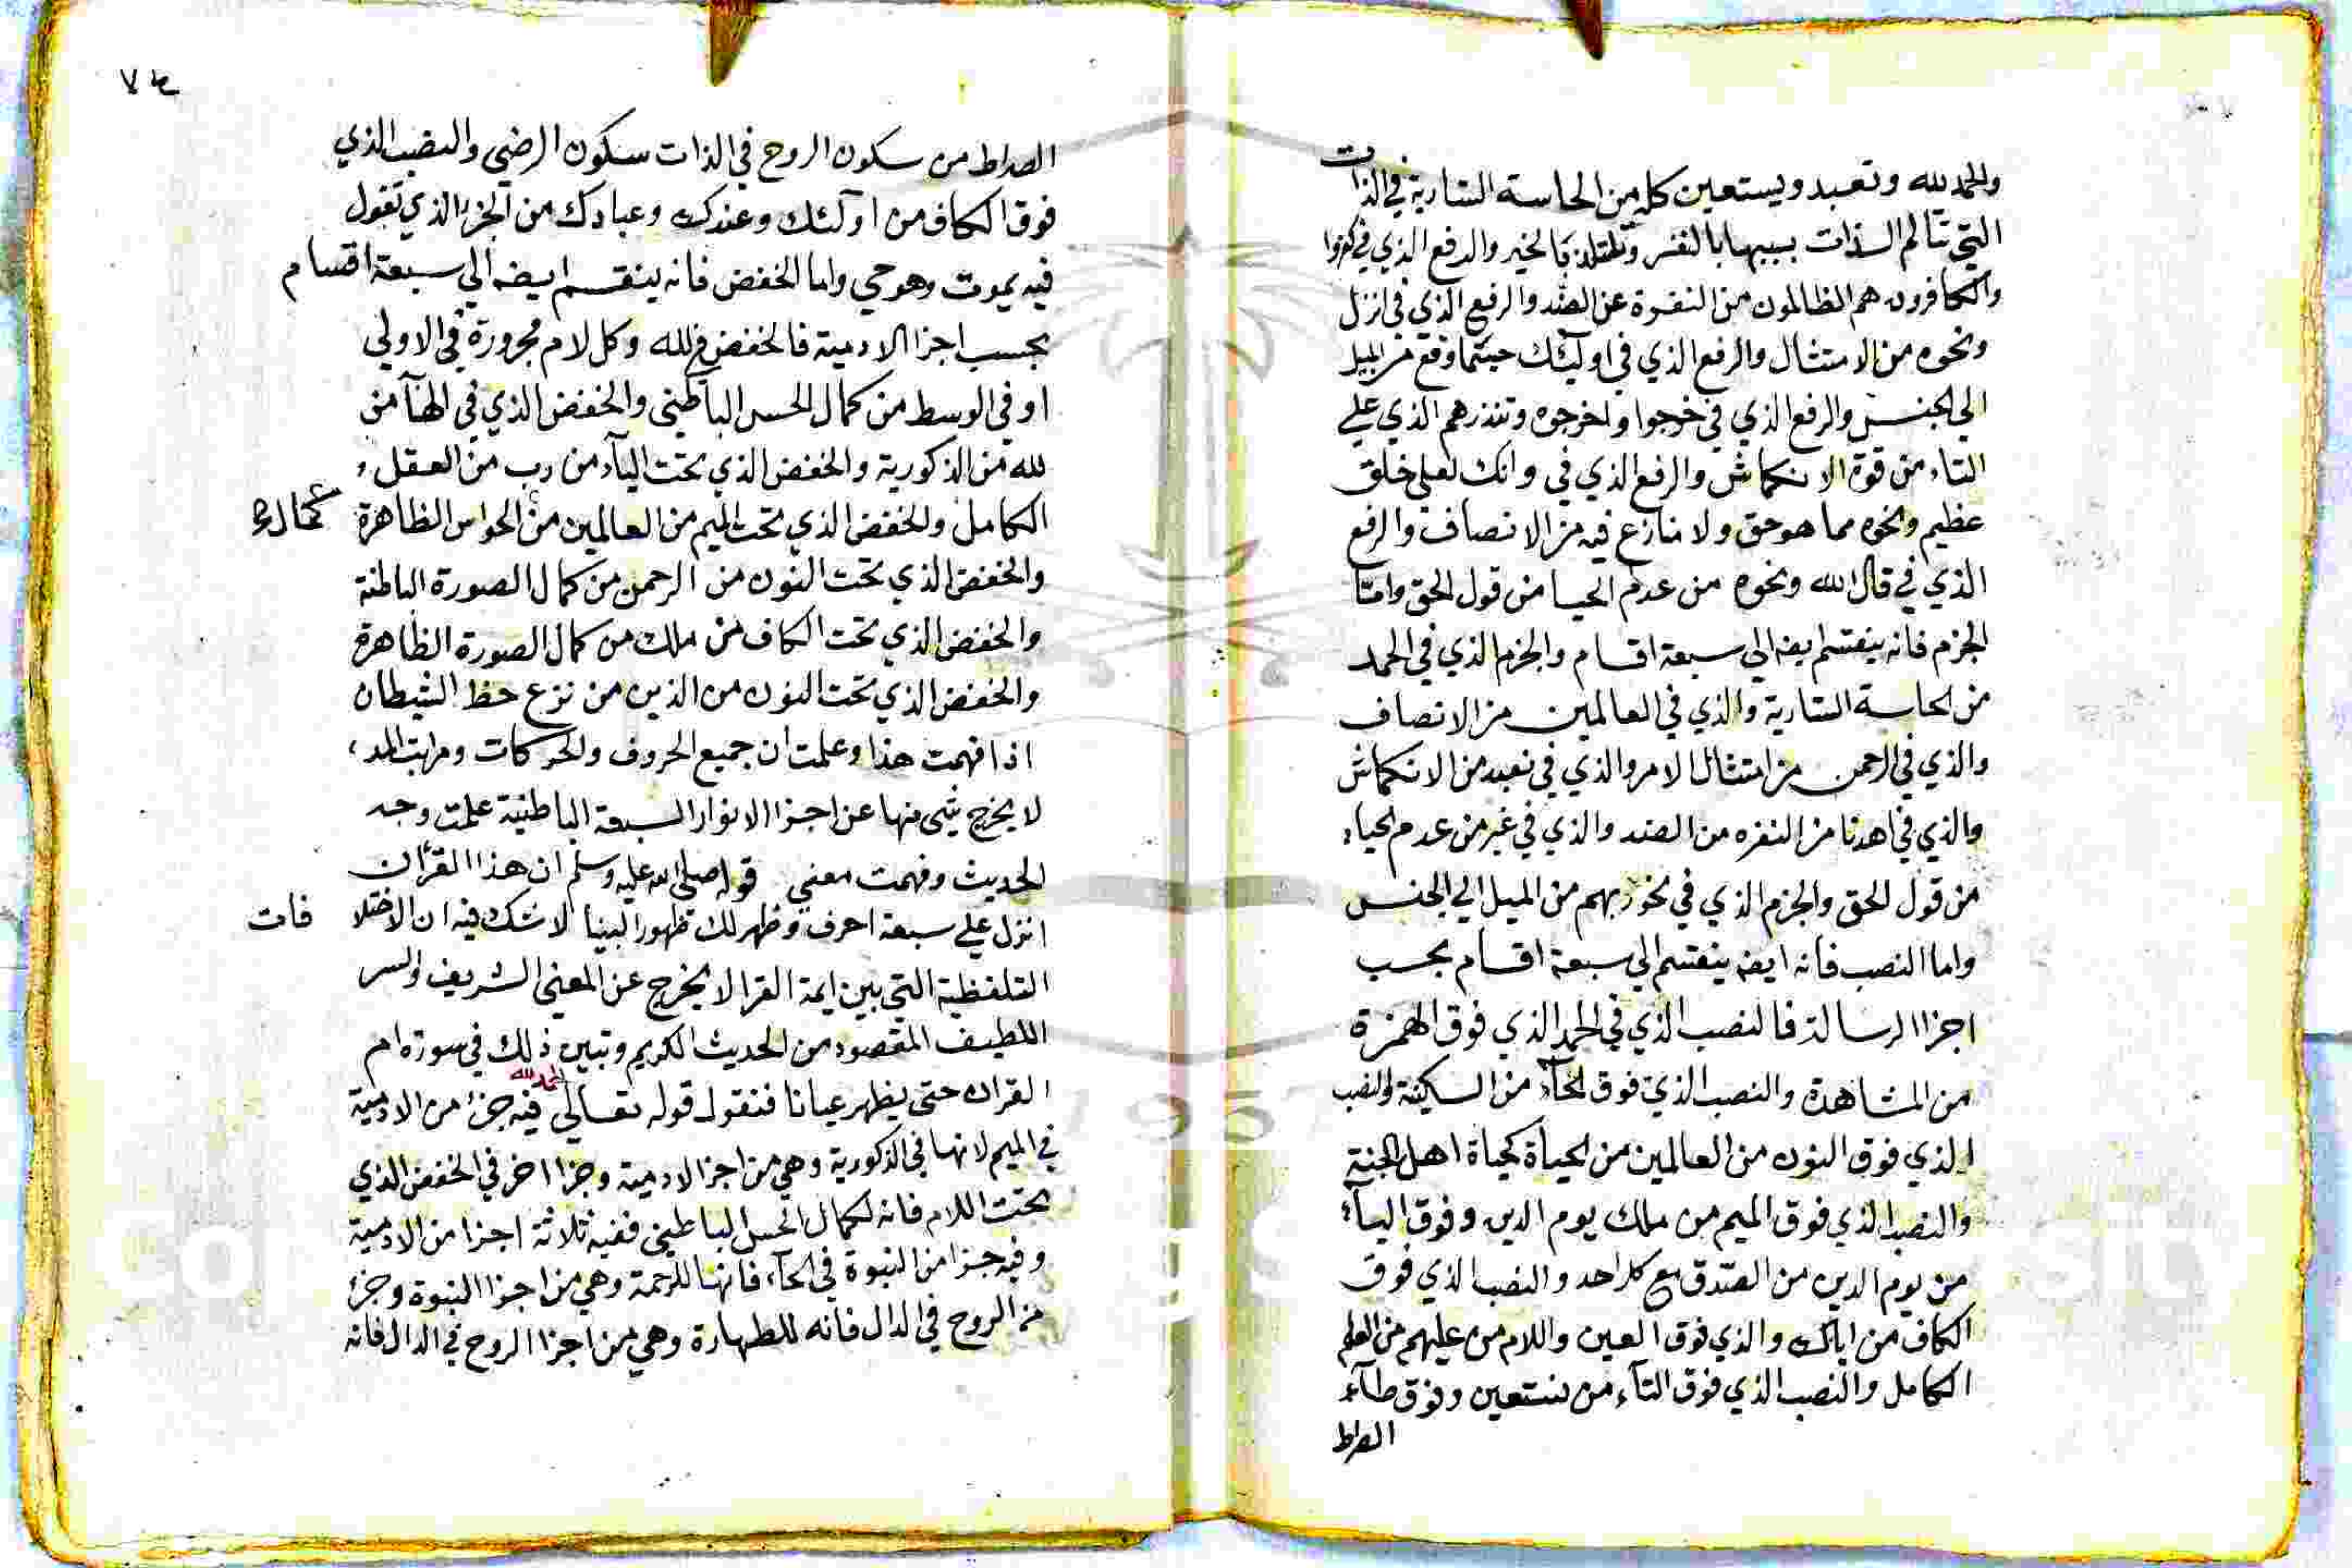 والحمد لله وتعبد ويستعين كله من الحاسة السارية في الذات
التي تتالم الذات بسببها بالضر وتلتذ بالخير والرفع الذي في كفروا
والكافرون هم الظالمون من النفرة عن الضد والرفع الذي في انزل
ونحوه من الامتثال والرفع الذي في اوليئك حيثما وقع من الميل
الي الجنس والرفع الذي في خرجوا واخرجوه وتنذرهم الذي علي
التاء من قوة الانكماش والرفع الذي في وانك لعلي خلق
عظيم ونحوه مما هو حق ولا منازع فيه من الانصاف والرفع
الذي في قال الله ونحوه من عدم الحيا من قول الحق واما
الجزم فانه ينقسم ايضه الي سبعة اقسام والجزم الذي في الحمد
من الحاسة السارية والذي في العالمين من الانصاف
والذي في الرحمن من امتثال الامر والذي في نعبد من الانكماش
والذي في اهدنا من النفره من الضد والذي في غير من عدم الحياء
من قول الحق والجزم الذي في نحو ربهم من الميل الي الجنس
واما النصب فانه ايضه ينقسم الي سبعة اقسام بحسب
اجزا الرسالة فالنصب الذي في الحمد الذي فوق الهمزة
من المشاهدة والنصب الذي فوق الحآء من السكينة والنصب
الذي فوق النون من العالمين من الحياة كحياة اهل الجنة
والنصب الذي فوق الميم من ملك يوم الدين وفوق اليآء
من يوم الدين من الصدق مع كل احد والنصب الذي فوق
الكاف من اياك والذي فوق العين واللام من عليهم من العلم
الكامل والنصب الذي فوق التآء من نستعين وفوق طآء
الصراط
٧٤
الصراط من سكون الروح في الذات سكون الرضي والنصب الذي
فوق الكاف من اولئك وعندك وعبادك من الجزء الذي تقول
فيه يموت وهو حي واما الخفض فانه ينقسم ايضه الي سبعة اقسام
بحسب اجزا الادمية فالخفض في لله وكل لام مجرورة في الاولي
او في الوسط من كمال الحس الباطني والخفض الذي في الهآ من
لله من الذكورية والخفض الذي تحت البآء من رب من العقل
الكامل والخفض الذي تحت الميم من العالمين من الحواس الظاهرة كمال
والخفض الذي تحت النون من الرحمن من كمال الصورة الباطنة
والخفض الذي تحت الكاف من ملك من كمال الصورة الظاهرة
والخفض الذي تحت النون من الذين من نزع حظ الشيطان
اذا فهمت هذا وعلمت ان جميع الحروف والحركات ومراتب المد
لا يخرج شي منها عن اجزا الانوار السبعة الباطنية علمت وجه
الحديث وفهمت معني قوله صلى الله عليه وسلم ان هذا القرآن
انزل علي سبعة احرف وظهر لك ظهور البينا لا شك فيه ان الاختلا فات
التلفظية التي بين ايمة القرا لا يخرج عن المعني الشريف والسر
اللطيف المقصود من الحديث الكريم وتبين ذلك في سورة ام
القران حتى يظهر عيانا فنقول قوله تعالي الحمد لله فيه جزء من الادمية
في الميم لانها في الذكورية وهي من اجزا الادمية وجزا اخر في الخفض الذي
تحت اللام فانه لكمال الحس الباطني ففيه ثلاثة اجزا من الادمية
وفيه جزا من النبوة في الحآء فانها للرحمة وهي من اجزا النبوة وجزء
من الروح في الدال فانه للطهارة وهي من اجزا الروح في الدال فانه